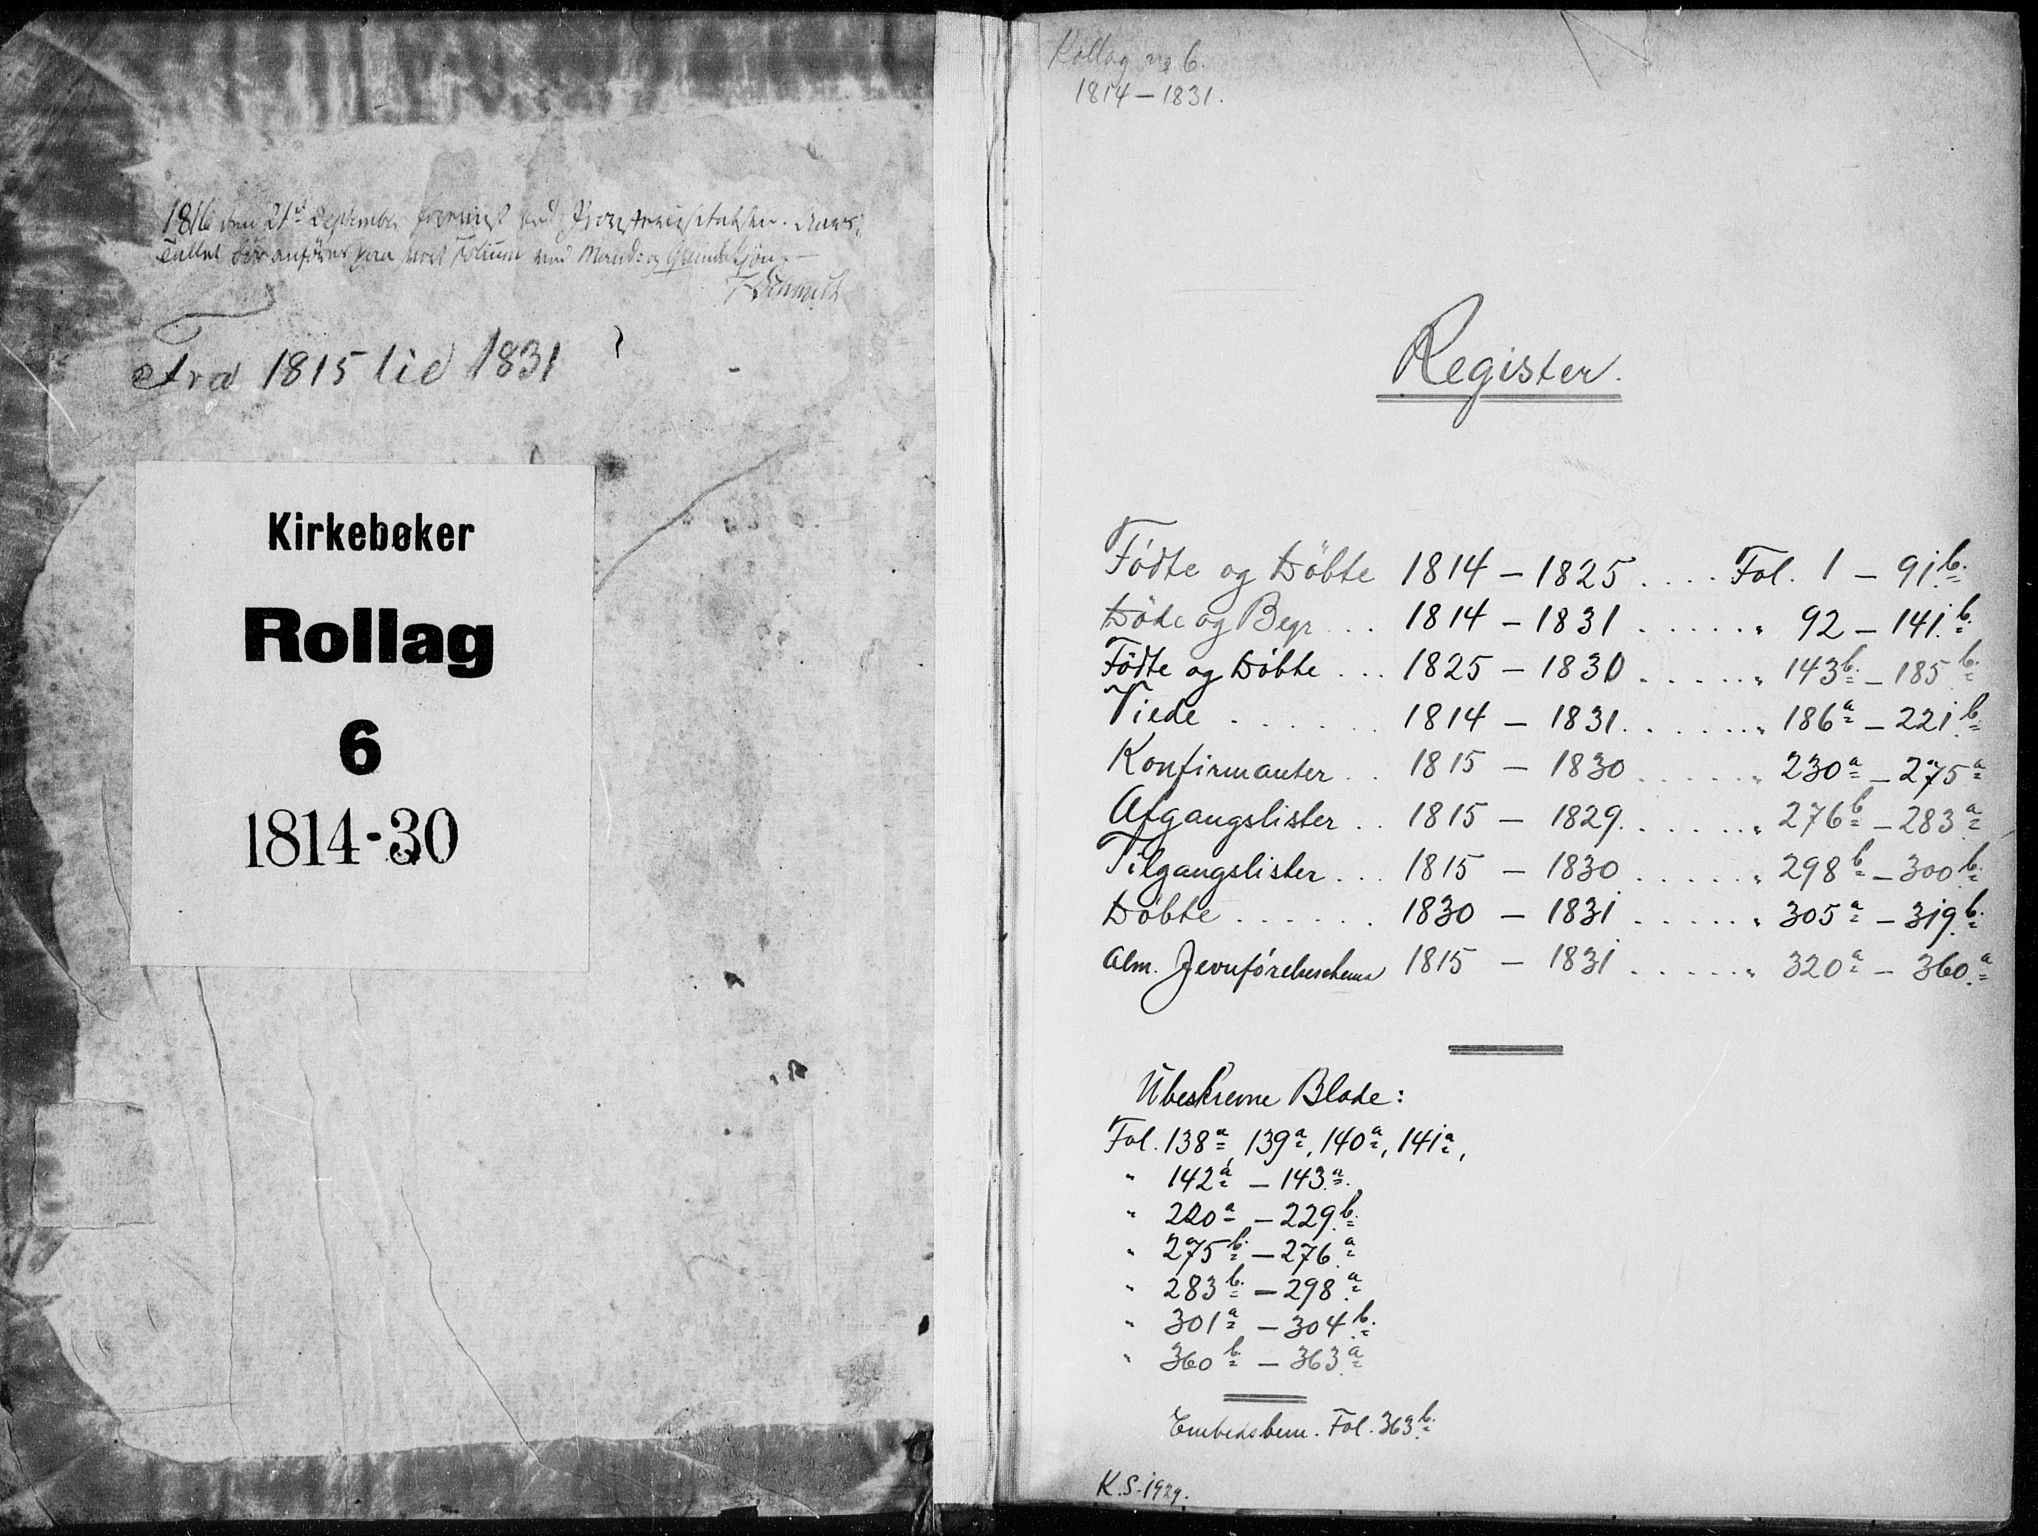 1816 den 21de September
T Schmidt
Fra 1815 til 1831
Kirkebøker
Rollag
6
1814-30
Rollag no 6.
1814 – 1831.
Register.
Födte og Döbte 1814 – 1825 . . . . Fol. 1 – 91.b.
Döde og Begr . . . 1814 – 1831 . . . . . „ 92 – 141.b.
Födte og Döbte . . . 1825 – 1830 . . . . . „ 143b. – 185b.
Viede . . . . . . 1814 – 1831 . . . . . . „ 186a – 221b.
Konfirmanter . . 1815 – 1830 . . . . . „ 230a – 275a
Afgangslister . . 1815 – 1829 . . . . . . „ 276b – 283a
Tilgangslister . . . 1815 – 1830 . . . . . „ 298b – 300b.
Döbte . . . . . . 1830 – 1831 . . . . . . „ 305a – 319b.
Alm. Jevnförelseschema 1815 – 1831 . . . . . „ 320a – 360a
Ubeskrevne Blade:
Fol. 138a, 139a, 140a, 141a,
„ 142a – 143a.
„ 220a – 229b.
„ 275b. – 276a
„ 283b. – 298a
„ 301a – 304b.
„ 360b. – 363a
Embedsbem. Fol. 363b.
K.S. 1929.